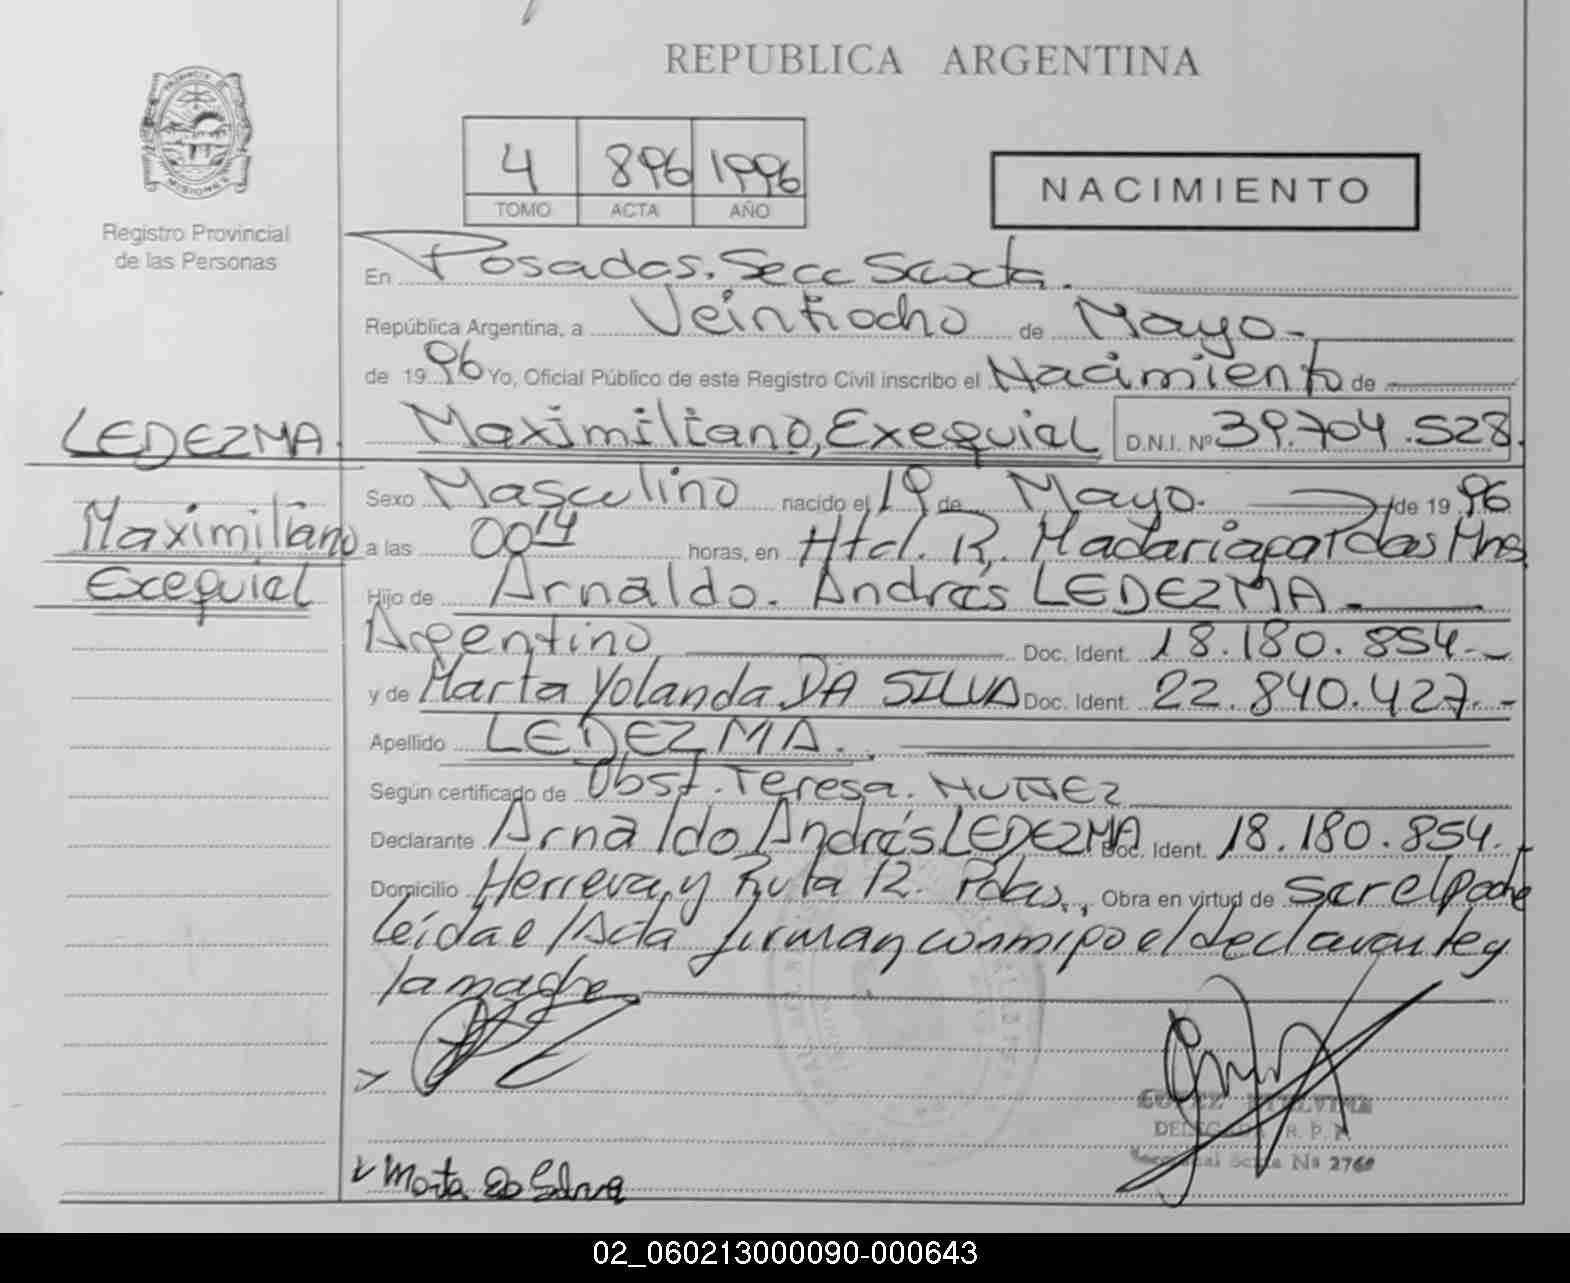 REPUBLICA ARGENTINA
PROVINCIA
MISIONES
Registro Provincial
de las Personas
4 896 1996
TOMO ACTA AÑO
NACIMIENTO
En Posadas. Secc Sexta.
República Argentina, a Veintiocho de Mayo
de 1996 Yo, Oficial Público de este Registro Civil inscribo el Nacimiento de
LEDEZMA. Maximiliano, Exequiel D.N.I. Nº 39.704.528.
Sexo Masculino nacido el 19 de Mayo. de 1996
Maximiliano
a las 00 14 horas, en Htal. R. Madariaga Pdas Mnes
Exequiel
Hijo de Arnaldo. Andrés LEDEZMA.
Argentino Doc. Ident. 18.180.854.-
y de Marta Yolanda DA SILVA Doc. Ident. 22.840.427.-
Apellido LEDEZMA.
Según certificado de Obst. Teresa. NUÑEZ
Declarante Arnaldo Andrés LEDEZMA Doc. Ident. 18.180.854.
Domicilio Herrera y Ruta 12. Pdas., Obra en virtud de
leída el Acta firman conmigo el declarante y
la madre
DELEGADA R. P. P.
Seccional Sexta Nº 2760
Marta Da Silva
02_060213000090-000643